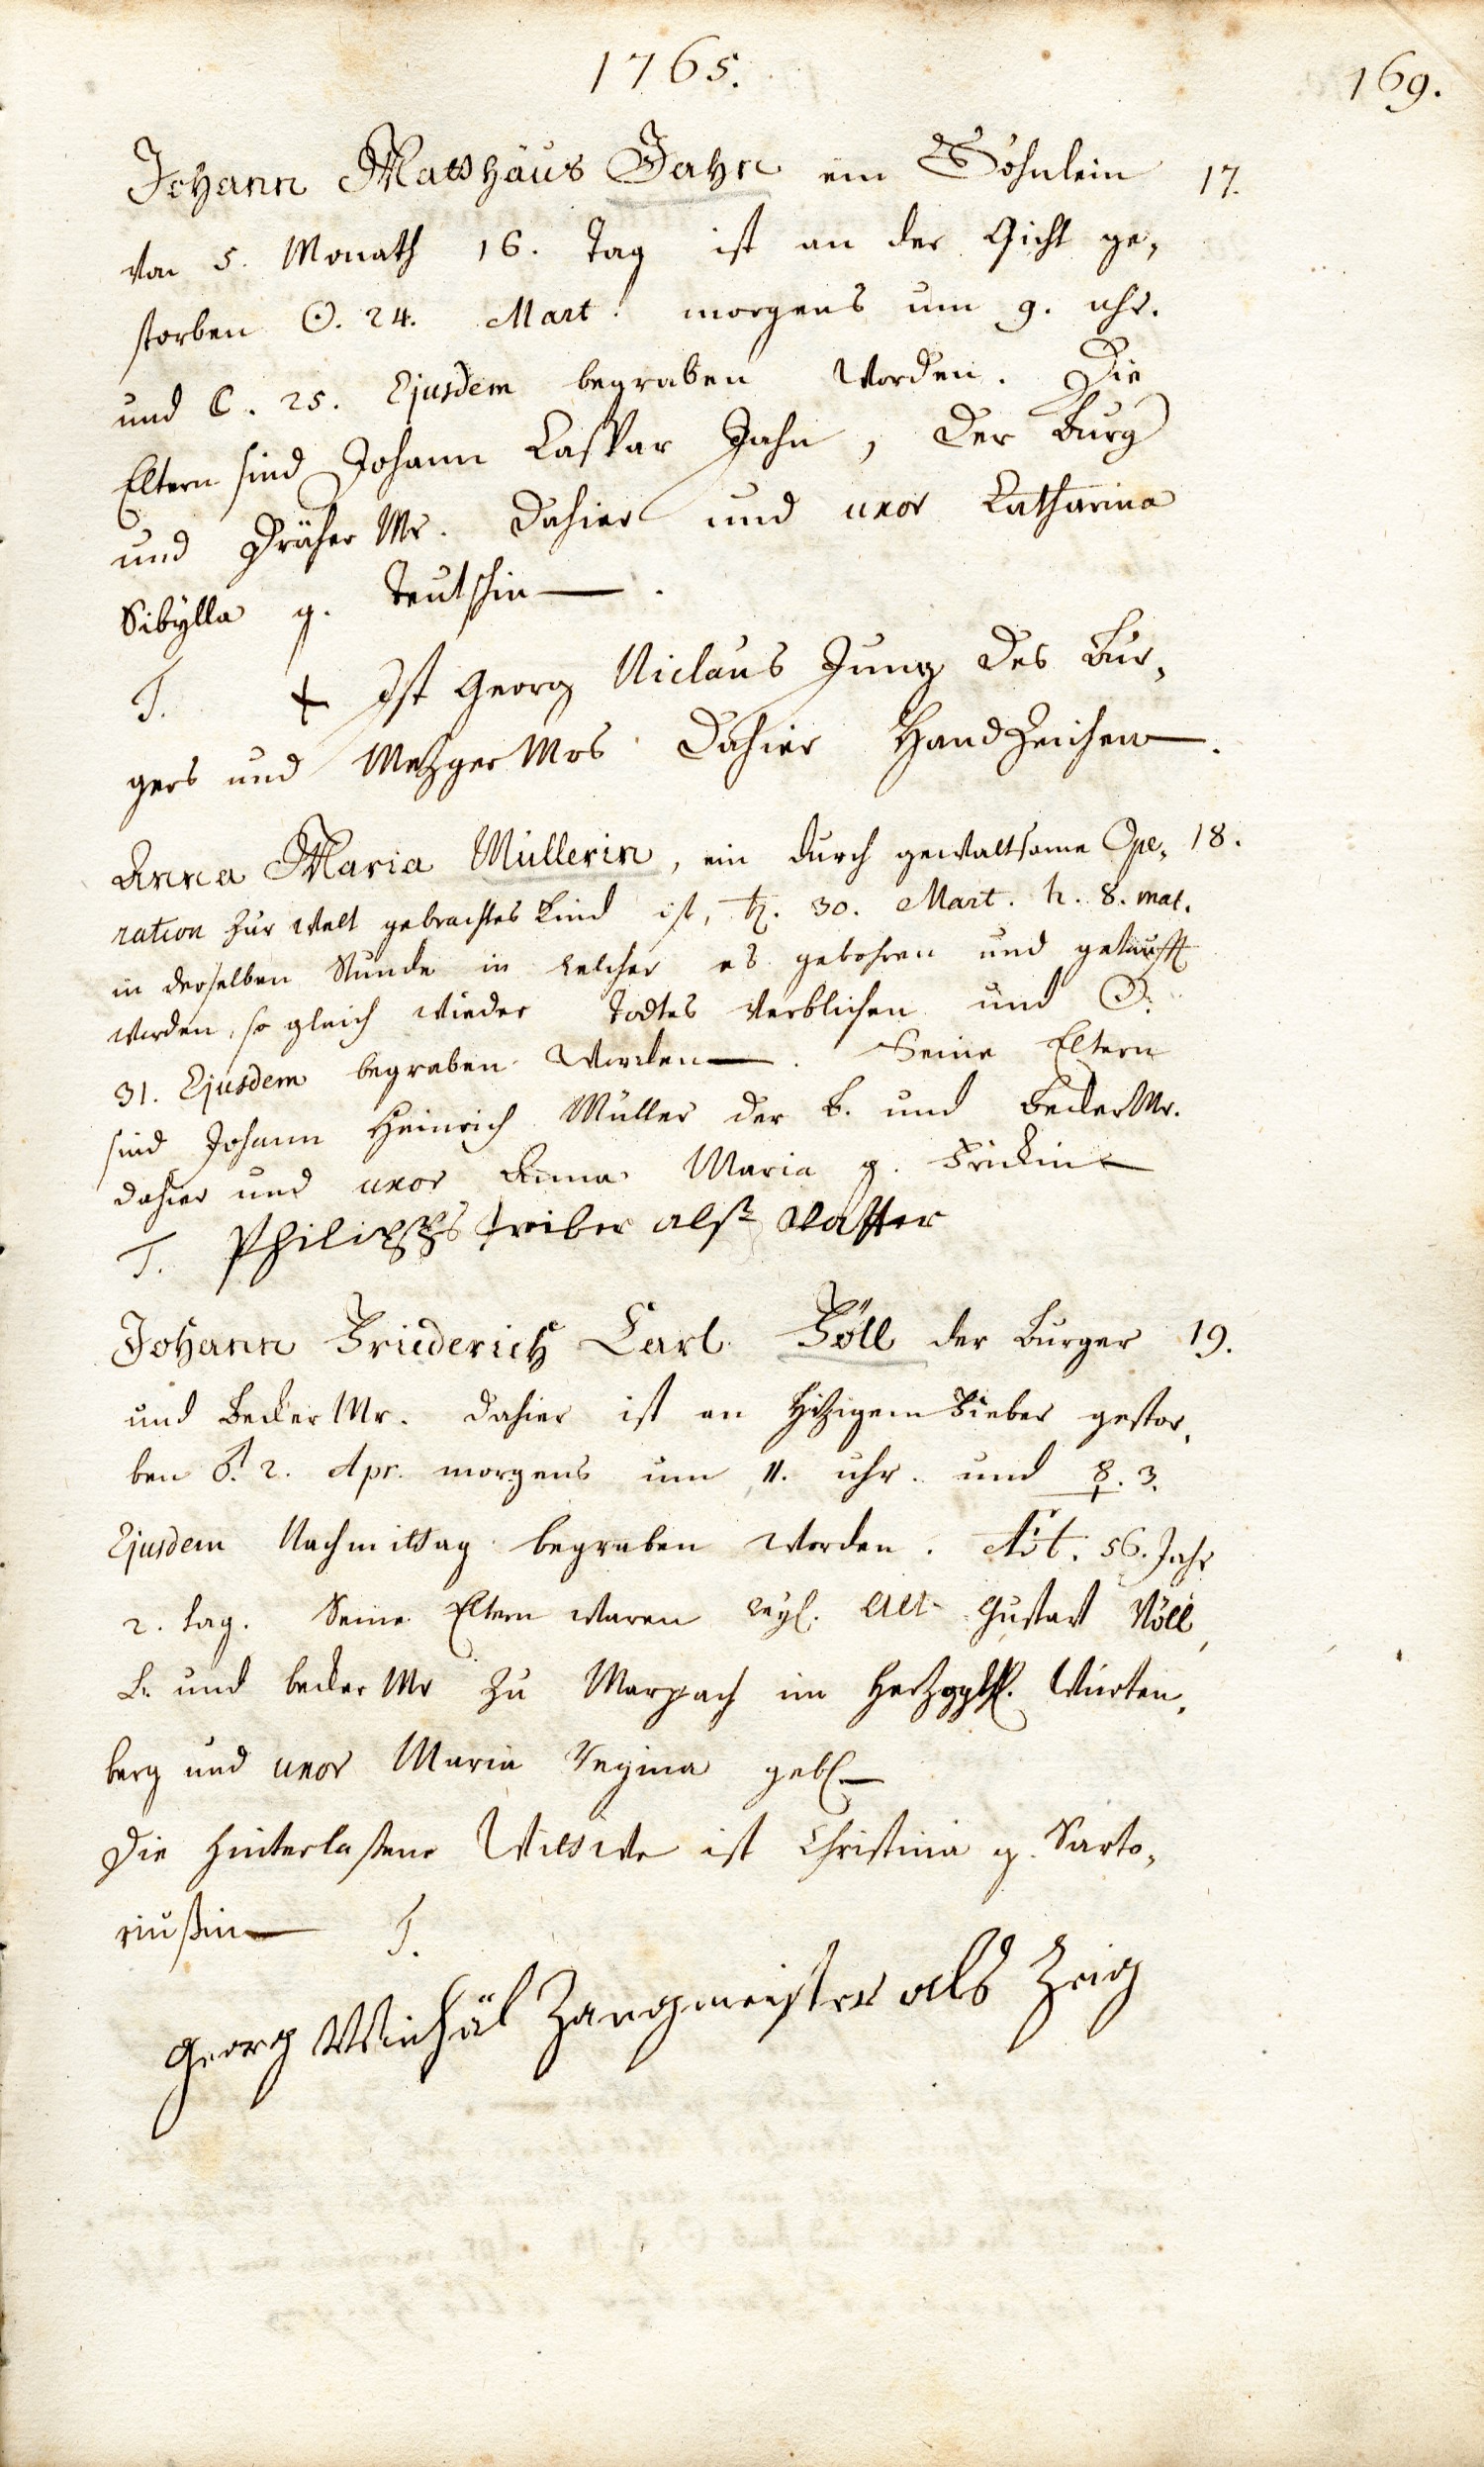 1765.
169.
Johann Matthäus Jahn ein Söhnlein 17.
von 5. Monath 16. Tag ist an der Gicht ge,
storben ☉. 24. Mart. morgens um 9. uhr.
und ☾. 25. Ejusdem begraben worden. Die
Eltern sind Johann Caspar Jahn, der Burg
und Dräher Mr. dahier und uxor Catharina
Sibÿlla g. Teutschin —.
T. + Ist Georg Niclaus Jung des Bur,
gers und Mezger Mrs dahier Handzeichen —.
Anna Maria Müllerin, ein durch gewaltsame Ope, 18.
ration zur Welt gebrachtes Kind ist, ♄. 30. Mart. h. 8. mat.
in derselben Stunde in welcher es gebohren und getaufft
worden, so gleich wieder Todtes verblichen und ☉.
31. Ejusdem begraben worden —. Seine Eltern
sind Johann Heinrich Müller der B. und Becker Mr.
dahier und uxor Anna Maria g. Frickin —
T. Philipps Treiber alß Vatter
Johann Friederich Carl Föll der Burger 19.
und Becker Mr. dahier ist an hizigem Fieber gestor,
ben ♂. 2. Apr. morgens um 11. uhr. und ☿. 3.
Ejusdem Nachmittag begraben worden. Æt. 56. Jahr
2. tag. Seine Eltern waren weyl. Alt Gustav Völl,
B. und becker Mr zu Marpach im Herzogth. Würten,
berg und uxor Maria Regina geb. —
Die hinterlaßene Wittwe ist Christina g. Sarto,
riußin — T.
Georg Michäl Zangmeister als Zeig